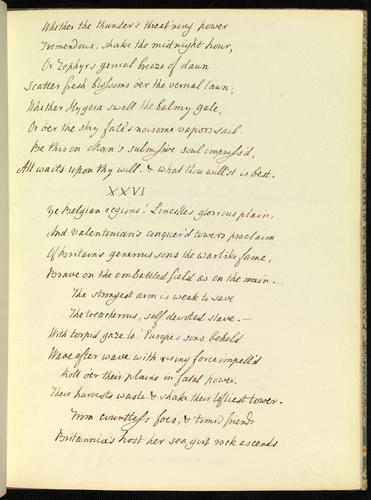 Whether the thunder's threat'ning power
Tremendous, shake the midnight hour,
Or Zephyr's genial breeze of dawn
Scatter fresh blossoms o'er the vernal lawn;
Whether Hygeia swell the balmy gale,
Or o'er the sky fate's noisome vapors sail.
Be this on Man's submissive soul impress'd,
All waits upon thy will, & what thou will'st is best.
XXVI
Ye Belgian regions! Lincelles, glorious plain,
And Valentinian's conquer'd towers proclaim
Of Britain's generous sons the warlike fame,
Brave on the embattled field as on the main. —
The strongest arm is weak to save
The treacherous, self devoted slave. —
With torpid gaze lo! Europe's sons behold
Wave after wave with rising force impell'd
Roll o'er their plains in fatal power.
Their harvests waste & shake their loftiest tower.
From countless foes, & timid friends
Britannia's host her sea girt rock ascends